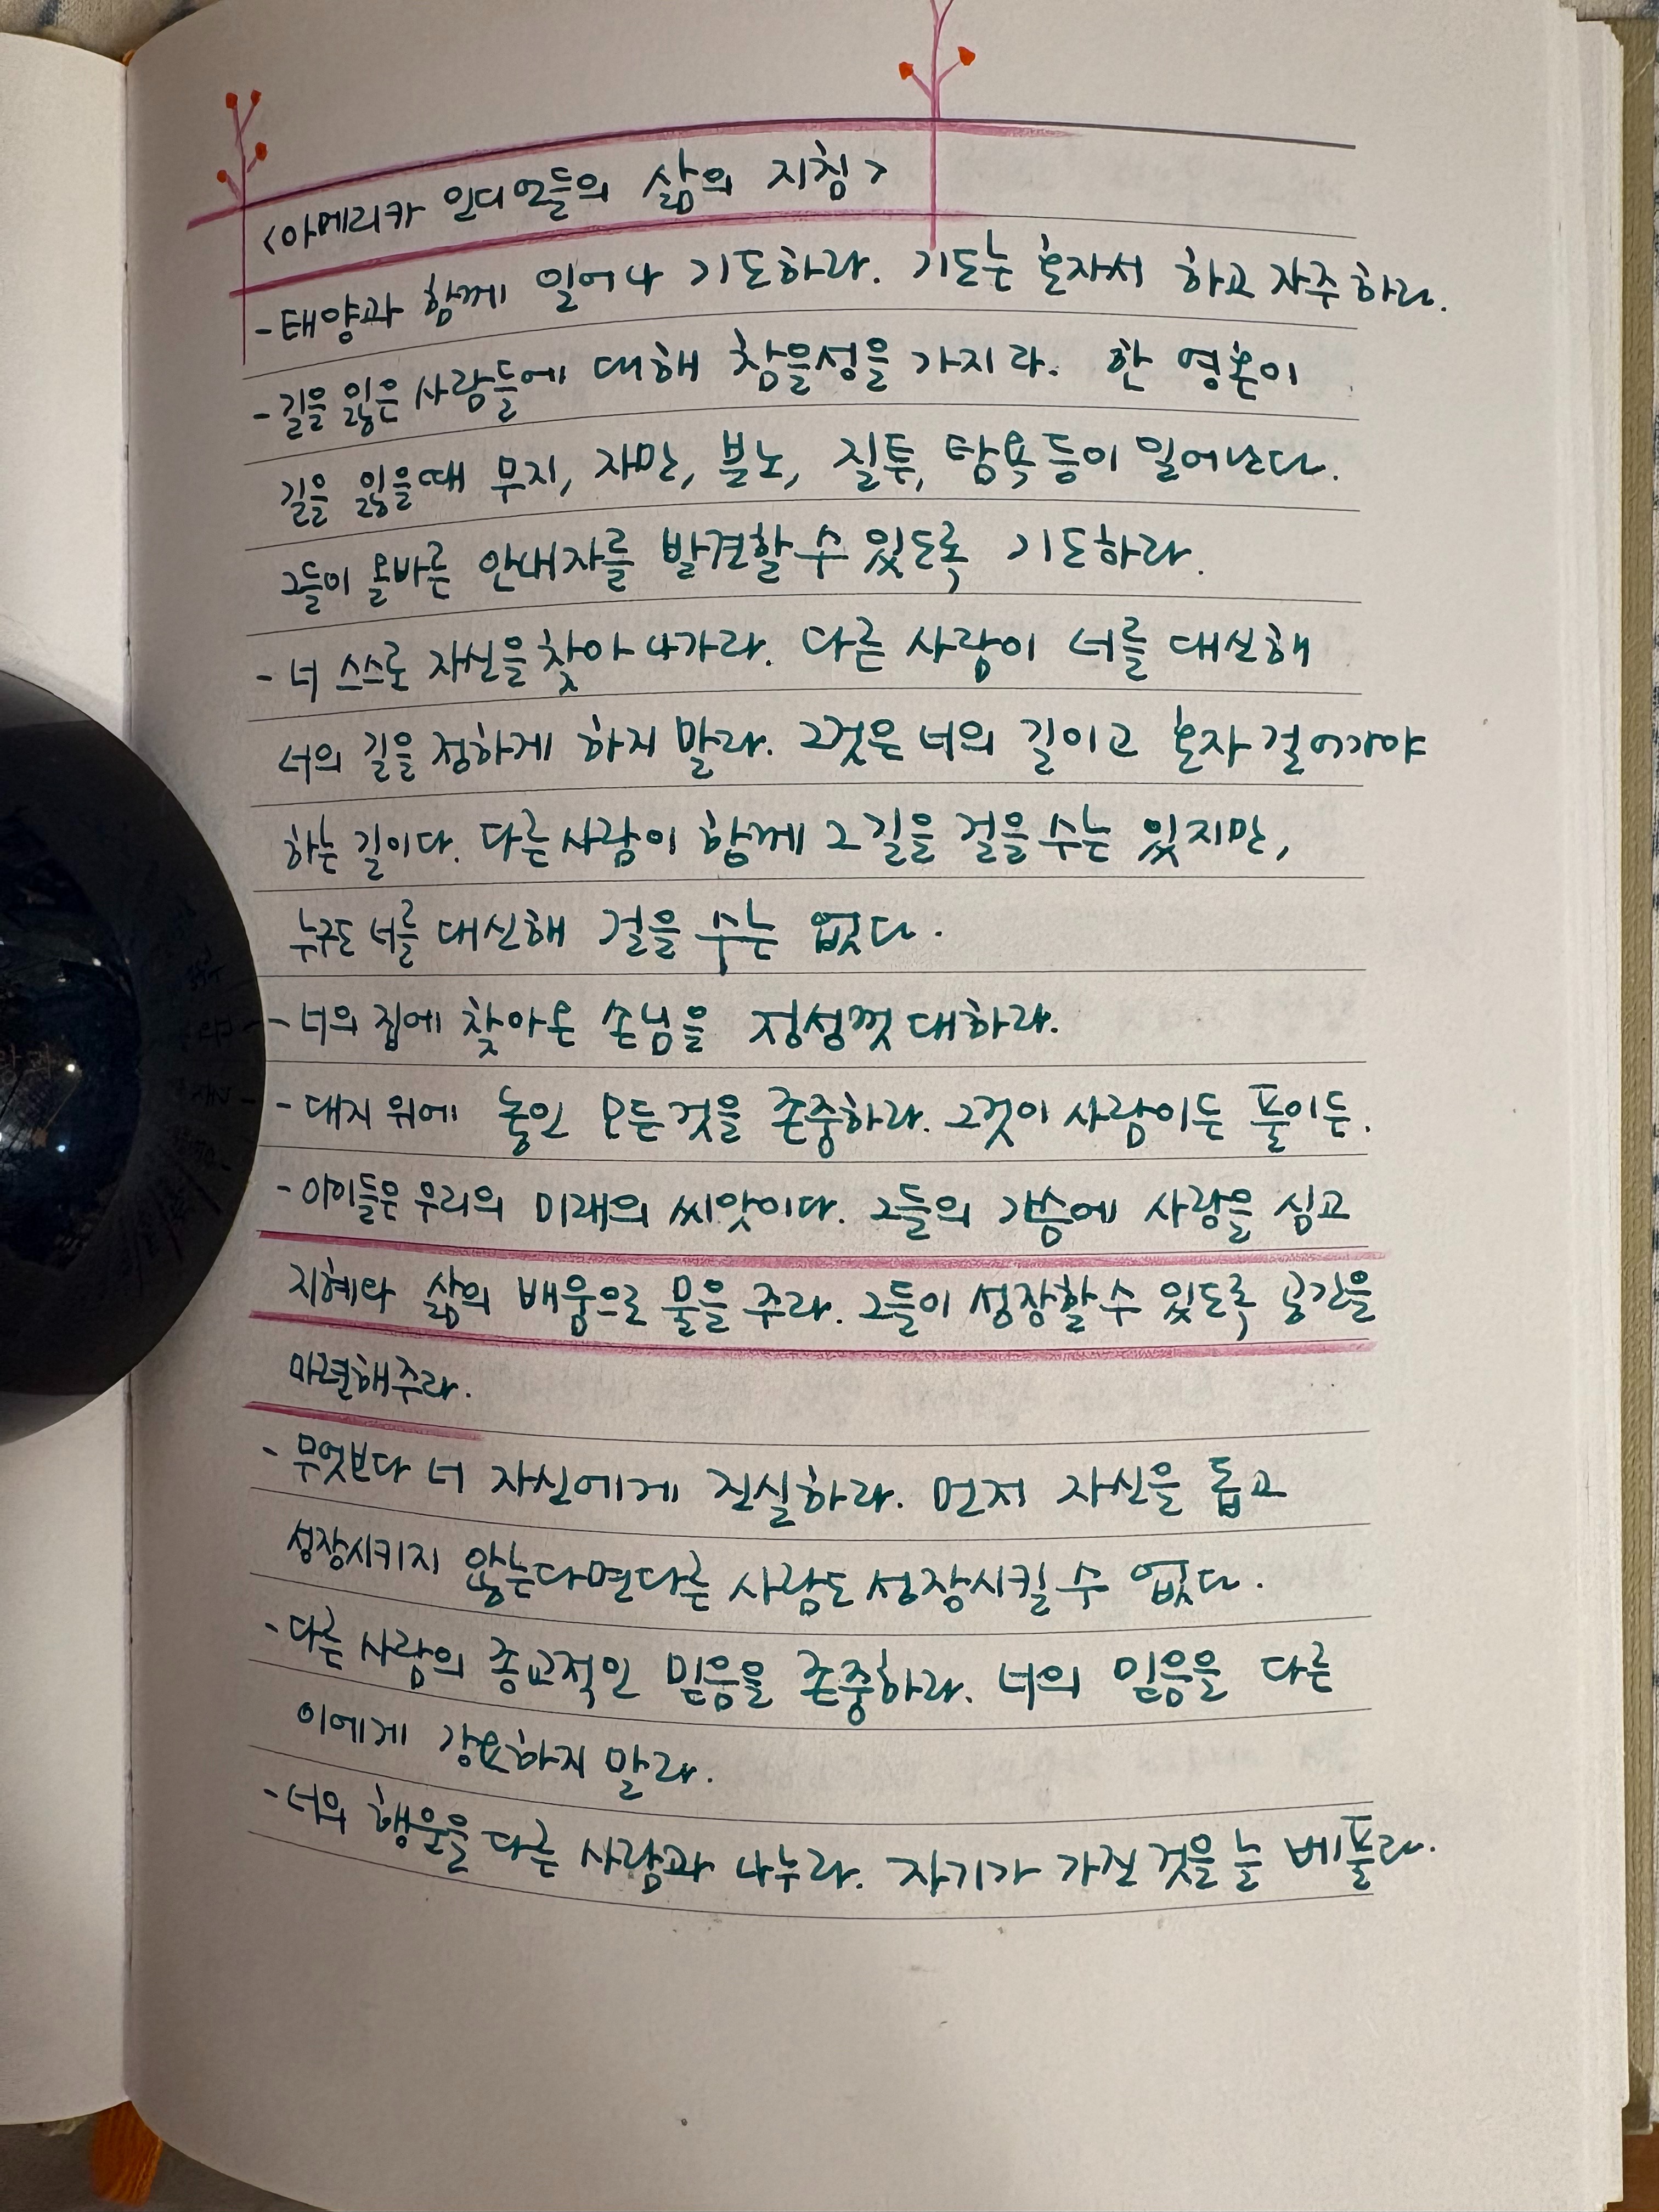 <아메리카 인디언들의 삶의 지침>
- 태양과 함께 일어나 기도하라. 기도는 혼자서 하고 자주 하라.
- 길을 잃은 사람들에 대해 참을성을 가지라. 한 영혼이
길을 잃을때 무지, 자만, 분노, 질투, 탐욕 등이 일어난다.
그들이 올바른 안내자를 발견할 수 있도록 기도하라.
- 너 스스로 자신을 찾아 나가라. 다른 사람이 너를 대신해
너의 길을 정하게 하지 말라. 그것은 너의 길이고 혼자 걸어가야
하는 길이다. 다른 사람이 함께 그 길을 걸을 수는 있지만,
누구도 너를 대신해 걸을 수는 없다.
- 너의 집에 찾아온 손님을 정성껏 대하라.
- 대지 위에 놓인 모든 것을 존중하라. 그것이 사람이든 풀이든.
- 아이들은 우리의 미래의 씨앗이다. 그들의 가슴에 사랑을 심고
지혜와 삶의 배움으로 물을 주라. 그들이 성장할 수 있도록 공간을
마련해주라.
- 무엇보다 너 자신에게 진실하라. 먼저 자신을 돕고
성장시키지 않는다면 다른 사람도 성장시킬 수 없다.
- 다른 사람의 종교적인 믿음을 존중하라. 너의 믿음을 다른
이에게 강요하지 말라.
- 너의 행운을 다른 사람과 나누라. 자기가 가진 것을 늘 베풀라.